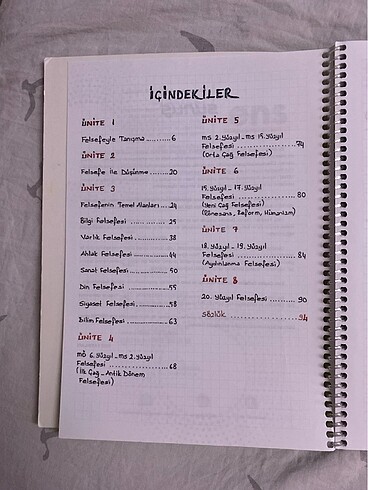 İÇİNDEKİLER
ÜNİTE 1
Felsefeyle Tanışma ..... 6
ÜNİTE 2
Felsefe ile Düşünme ..... 20
ÜNİTE 3
Felsefenin Temel Alanları .... 24
Bilgi Felsefesi .......... 25
Varlık Felsefesi .......... 38
Ahlak Felsefesi .......... 44
Sanat Felsefesi .......... 50
Din Felsefesi .......... 55
Siyaset Felsefesi .......... 58
Bilim Felsefesi .......... 63
ÜNİTE 4
MÖ 6. Yüzyıl - MS 2. Yüzyıl
Felsefesi .......... 68
(İlk Çağ - Antik Dönem
Felsefesi)
ÜNİTE 5
MS 2. Yüzyıl - MS 15. Yüzyıl
Felsefesi .......... 74
(Orta Çağ Felsefesi)
ÜNİTE 6
15. Yüzyıl - 17. Yüzyıl
Felsefesi .......... 80
(Yeni Çağ Felsefesi)
(Rönesans, Reform, Hümanizm)
ÜNİTE 7
18. Yüzyıl - 19. Yüzyıl
Felsefesi .......... 84
(Aydınlanma Felsefesi)
ÜNİTE 8
20. Yüzyıl Felsefesi ........ 90
Sözlük .......... 94